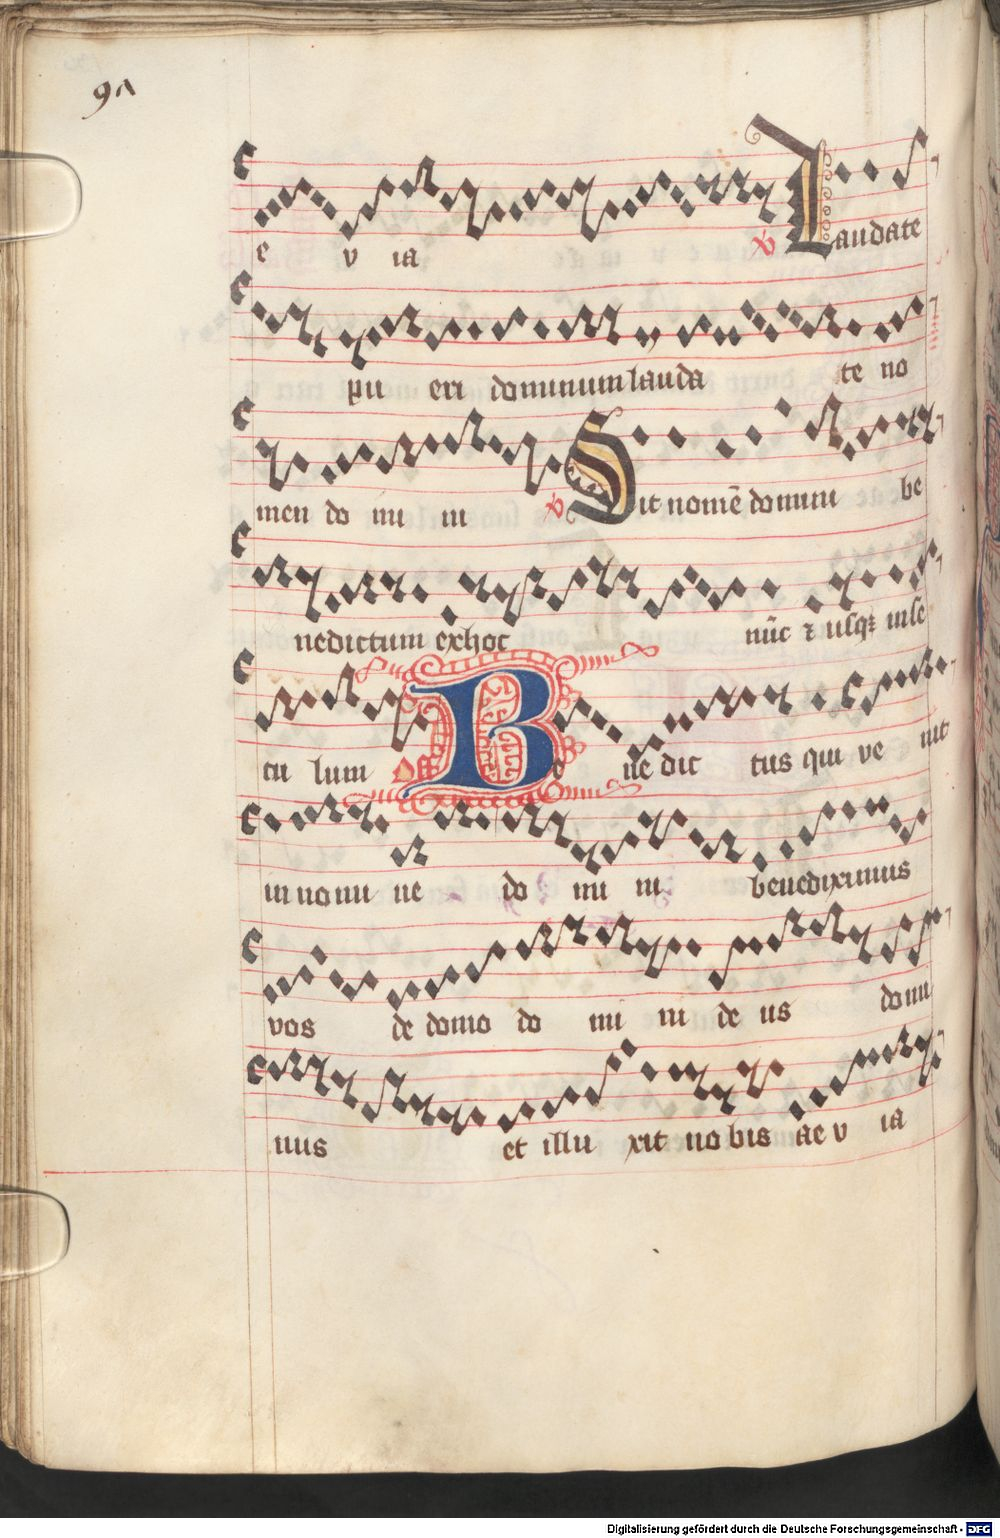 9^
e v ia ℣ Laudate
pu eri dominum lauda te no
men do mi ni ℣ Sit nomē domini be
nedictum ex hoc nūc ⁊ usqꝫ in se
cu lum Of Be ne dic tus qui ve nit
in nomi ne do mi ni benediximus
vos de domo do mi ni de us domi
nus et illu xit nobis ae v ia
Digitalisierung gefördert durch die Deutsche Forschungsgemeinschaft - DFG